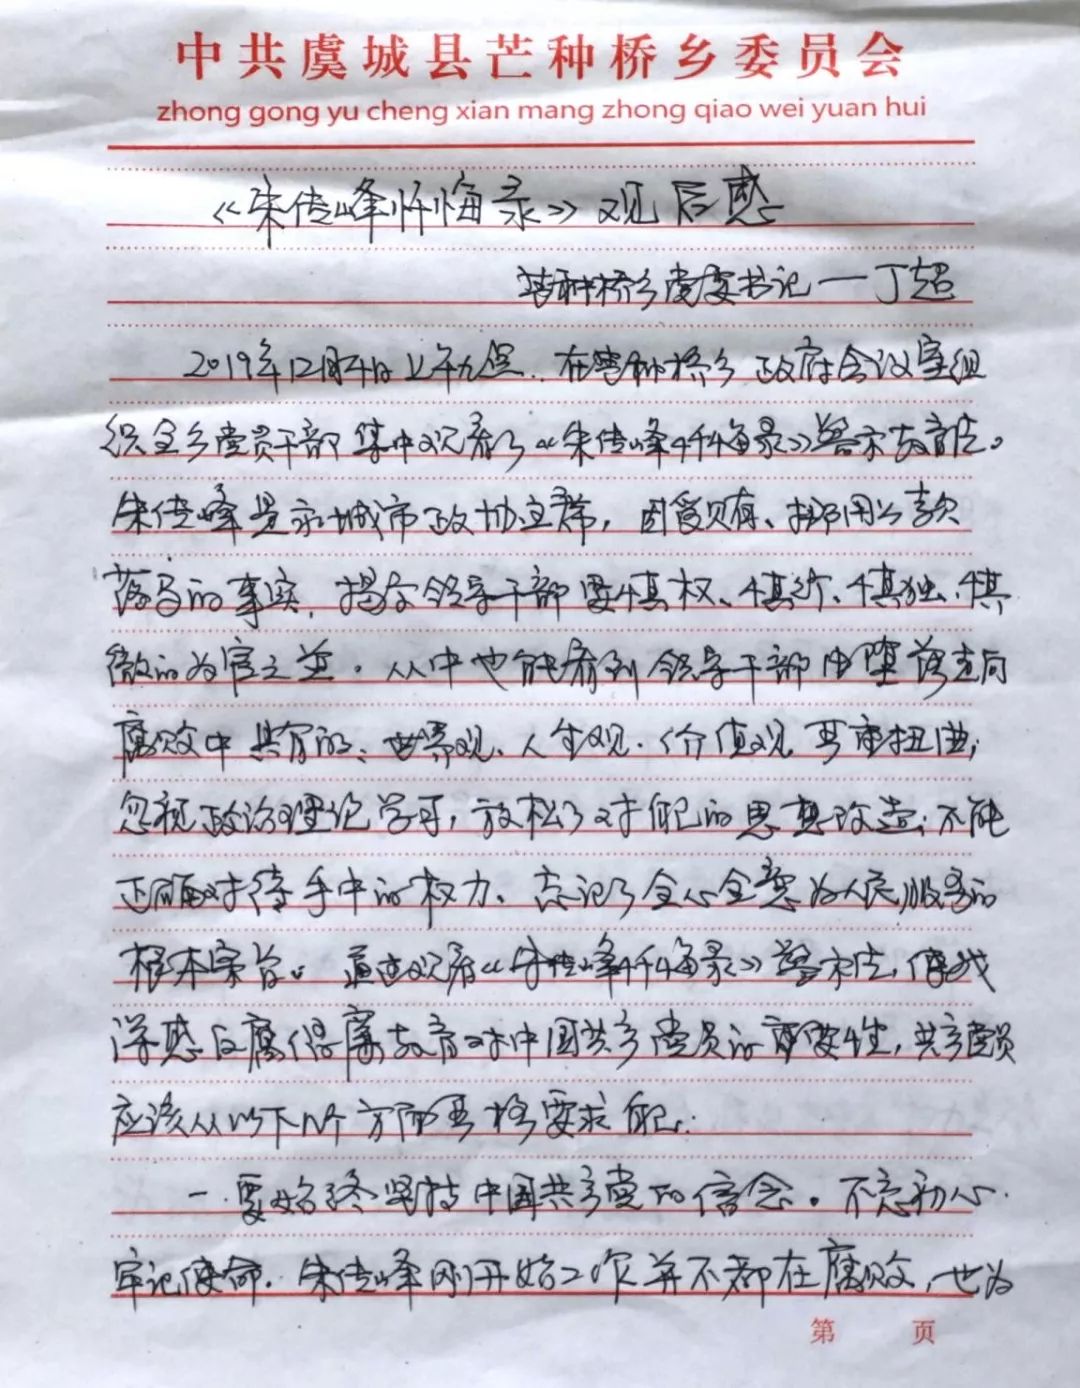 中共虞城县芒种桥乡委员会
zhong gong yu cheng xian mang zhong qiao wei yuan hui
《朱传峰忏悔录》观后感
芒种桥乡党委书记一丁超
2019年12月4日上午九点，在芒种桥乡政府会议室组
织全乡党员干部集中观看了《朱传峰忏悔录》警示教育片。
朱传峰是永城市政协主席，因受贿、挪用公款
落马的事实，揭示领导干部要慎权、慎行、慎独、慎
微的为官之道。从中也能看到领导干部由堕落走向
腐败中共有的、世界观、人生观、价值观严重扭曲；
忽视政治理论学习，放松了对自己的思想改造；不能
正确对待手中的权力、忘记了全心全意为人民服务的
根本宗旨。通过观看《朱传峰忏悔录》警示片，使我
深感反腐倡廉教育对中国共产党员的重要性，共产党员
应该从以下几个方面严格要求自己：
一.要始终坚持中国共产党的信念。不忘初心.
牢记使命.朱传峰刚开始工作并不都在腐败，也为
第 页